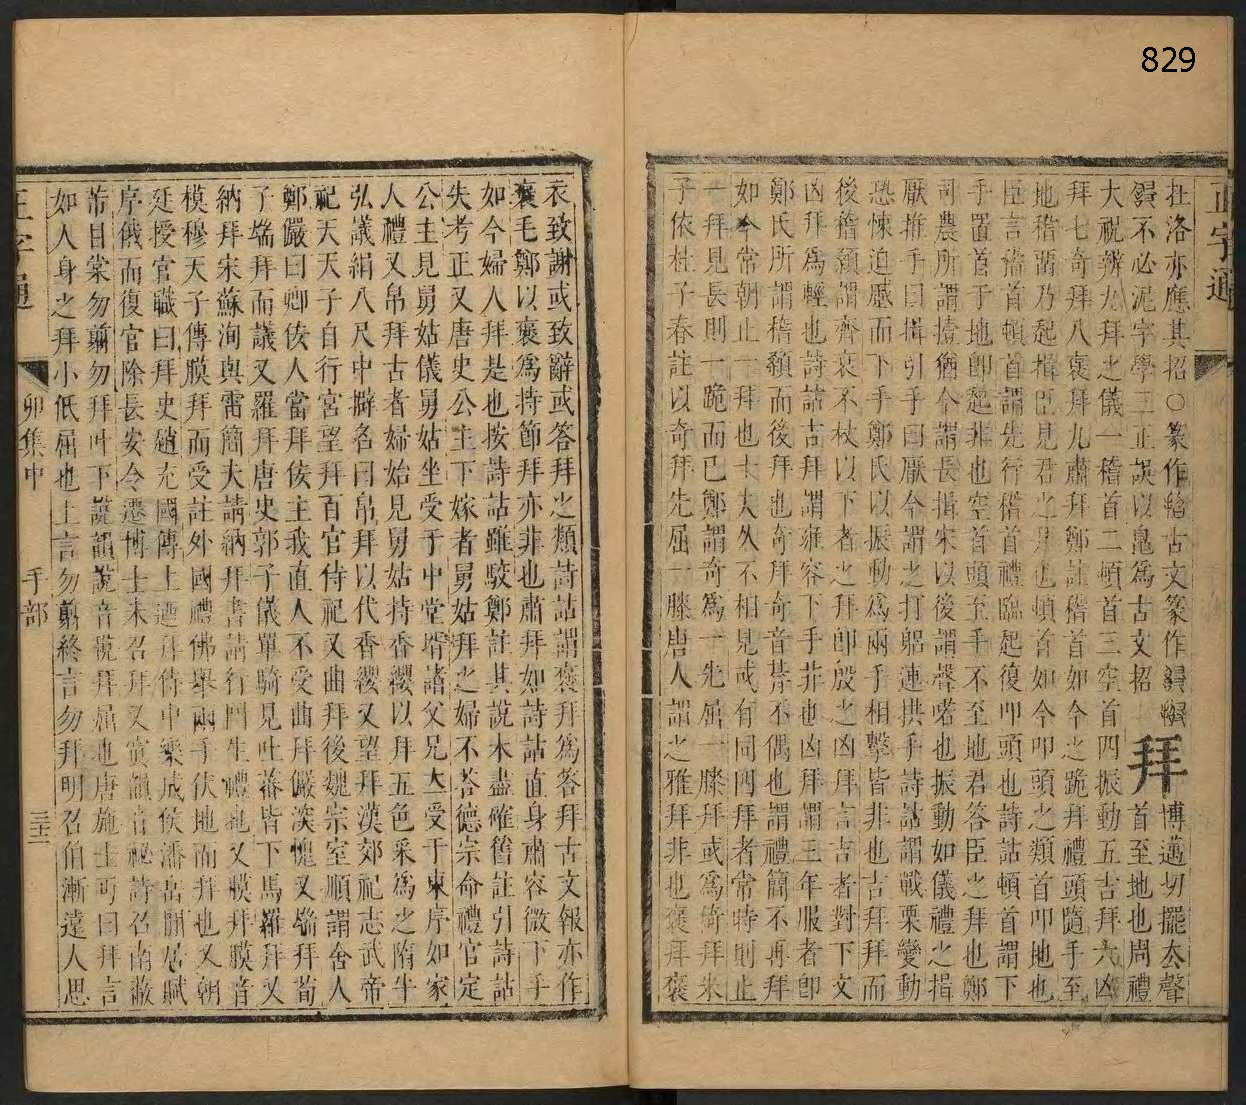 829
正字通
社洛亦應其招○篆作𢮦古文篆作
不必泥字學三正誤以鬼爲古文招 拜 博邁切擺去聲首至地也周禮
大祝辨九拜之儀一稽首二頓首三空首四振動五吉拜六凶
拜七奇拜八褒拜九肅拜鄭註稽首如今之跪拜禮頭隨手至
地稽留乃起揖臣見君之拜也頓首如今叩頭之類首叩地也
臣言稽首頓首謂先行稽首禮臨起復叩頭也詩詁頓首謂下
手置首于地卽起非也空首頭至手不至地君答臣之拜也鄭
司農所謂撎猶今謂長揖宋以後謂聲喏也振動如儀禮之揖
厭推手曰揖引手曰厭今謂之打躬連拱手詩詁謂戰栗變動
恐悚迫蹙而下手鄭氏以振動爲兩手相擊皆非也吉拜拜而
後稽顙謂齊衰不杖以下者之拜卽殷之凶拜言吉者對下文
凶拜爲輕也詩詁吉拜謂雍容下手非也凶拜謂三年服者卽
鄭氏所謂稽顙而後拜也奇拜奇音基不偶也謂禮簡不再拜
如今常朝止一拜也士大久不相見或有同四拜者常時則止
一拜見長則一跪而已鄭謂奇爲一先屈一膝拜或爲倚拜朱
子依杜子春註以奇拜先屈一膝唐人謂之雅拜非也褒拜褒
衣致謝或致辭或答拜之類詩詁謂褒拜爲答拜古文報亦作
褒毛鄭以褒爲持節拜亦非也肅拜如詩詁直身肅容微下手
如今婦人拜是也按詩詁雖駮鄭註其說未盡確舊註引詩詁
失考正又唐史公主下嫁者舅姑拜之婦不荅德宗命禮官定
公主見舅姑儀舅姑坐受于中堂壻諸父兄姊受于東序如家
人禮又帛拜古者婦始見舅姑持香纓以拜五色采爲之隋牛
弘議絹八尺中擗名曰帛拜以代香纓又望拜漢郊祀志武帝
祀天天子自行宮望拜百官侍祀又曲拜後魏宗室順謂舍人
鄭儼曰卿佞人當拜佞主我直人不受曲拜儼深愧又端拜荀
子端拜而議又羅拜唐史郭子儀單騎見吐蕃皆下馬羅拜又
納拜宋蘇洵與雷簡夫請納拜書請行門生禮也又膜拜膜音
模穆天子傳膜拜而受註外國禮佛舉兩手伏地而拜也又朝
廷授官職曰拜史趙充國傳上遷拜侍中樂成侯潘岳閒居賦
序俄而復官除長安令遷博士未召拜又賓韻音祕詩召南蔽
芾甘棠勿翦勿拜叶下說韻說音稅拜屈也唐施士丐曰拜言
如人身之拜小低屈也上言勿翦終言勿拜明召伯漸遠人思
正字通 卯集中 手部 三十二